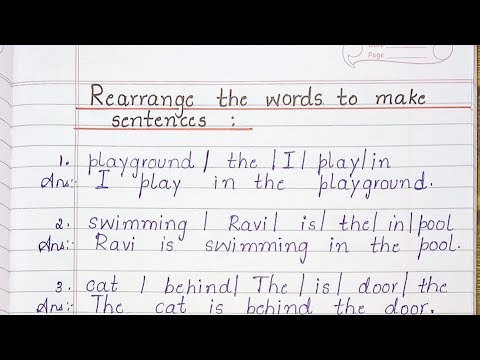 Page
Rearrange the words to make
sentences :
1. playground | the | I | play | in
Ans:- I play in the playground.
2. swimming | Ravi | is | the | in | pool
Ans:- Ravi is swimming in the pool.
3. cat | behind | The | is | door | the
Ans:- The cat is behind the door.